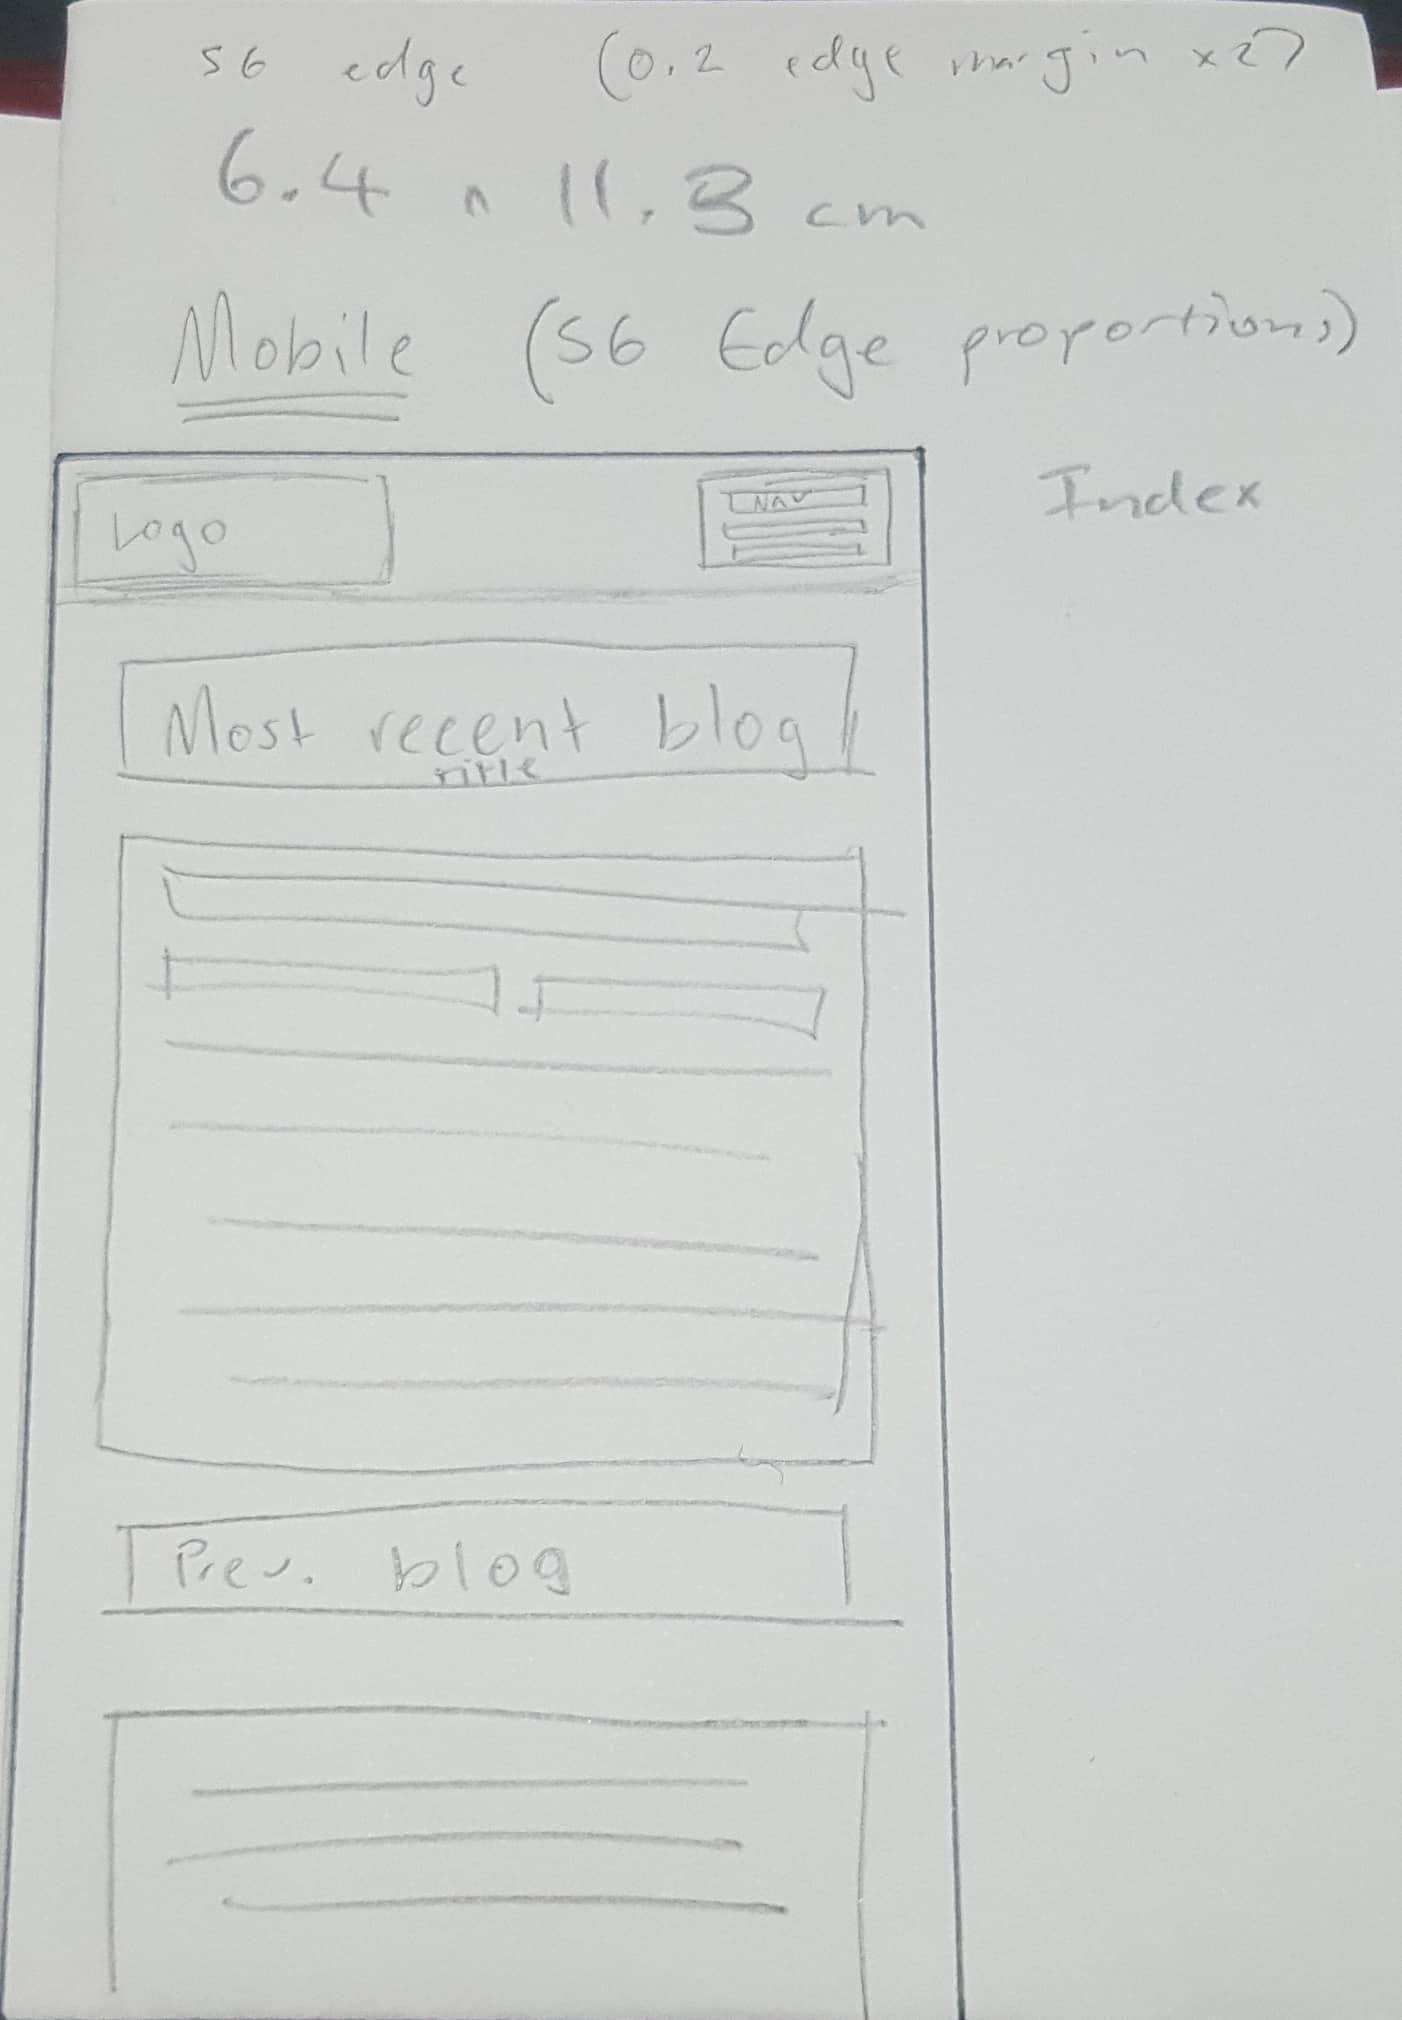 S6 edge (0.2 edge margin x2)
6.4 x 11.3 cm
Mobile (S6 Edge proportions)
Index
Logo
NAV
Most recent blog
title
Prev. blog